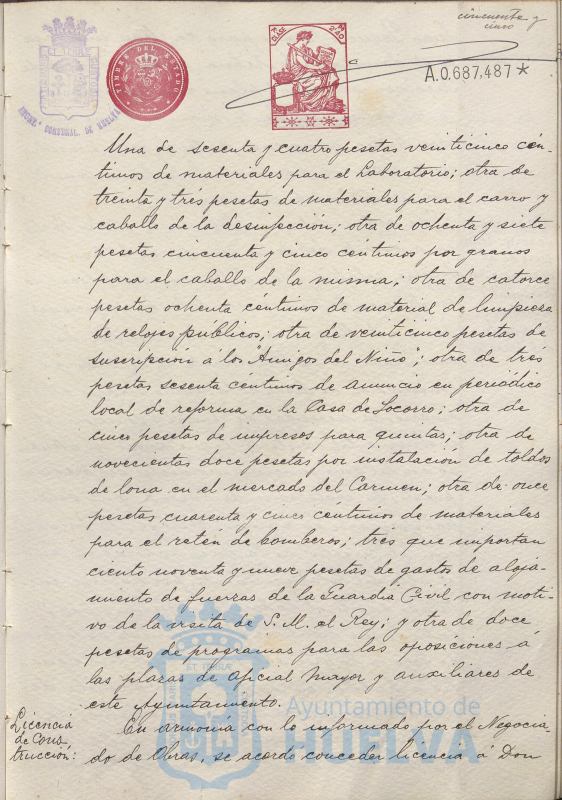 cincuenta y
cinco
TIMBRE DEL ESTADO
CLASE
A.0.687.487*
Una de sesenta y cuatro pesetas veinticinco cén-
timos de materiales para el Laboratorio; otra de
treinta y tres pesetas de materiales para el carro y
caballo de la desinfección; otra de ochenta y siete
pesetas cincuenta y cinco céntimos por granos
para el caballo de la misma; otra de catorce
pesetas ochenta céntimos de material de limpieza
de relojes públicos; otra de veinticinco pesetas de
suscripcion á los "Amigos del Niño"; otra de tres
pesetas sesenta centimos de anuncio en periódico
local de reforma en la Casa de Socorro; otra de
cinco pesetas de impresos para quintas; otra de
novecientas doce pesetas por instalación de toldos
de lona en el mercado del Carmen; otra de once
pesetas cuarenta y cinco céntimos de materiales
para el retén de bomberos; tres que importan
ciento noventa y nueve pesetas de gastos de aloja-
miento de fuerzas de la Guardia Civil con moti-
vo de la visita de S. M. el Rey; y otra de doce
pesetas de programas para las oposiciones á
las plazas de Oficial mayor y auxiliares de
este Ayuntamiento.
Licencia
de Cons
trucción:
En armonía con lo informado por el Negocia-
do de Obras, se acordo conceder licencia á Don
Ayuntamiento de
HUELVA